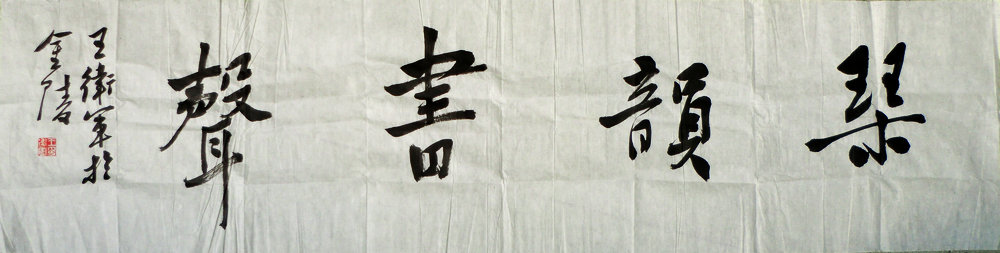 琹韻書聲
王衛軍於
金陵